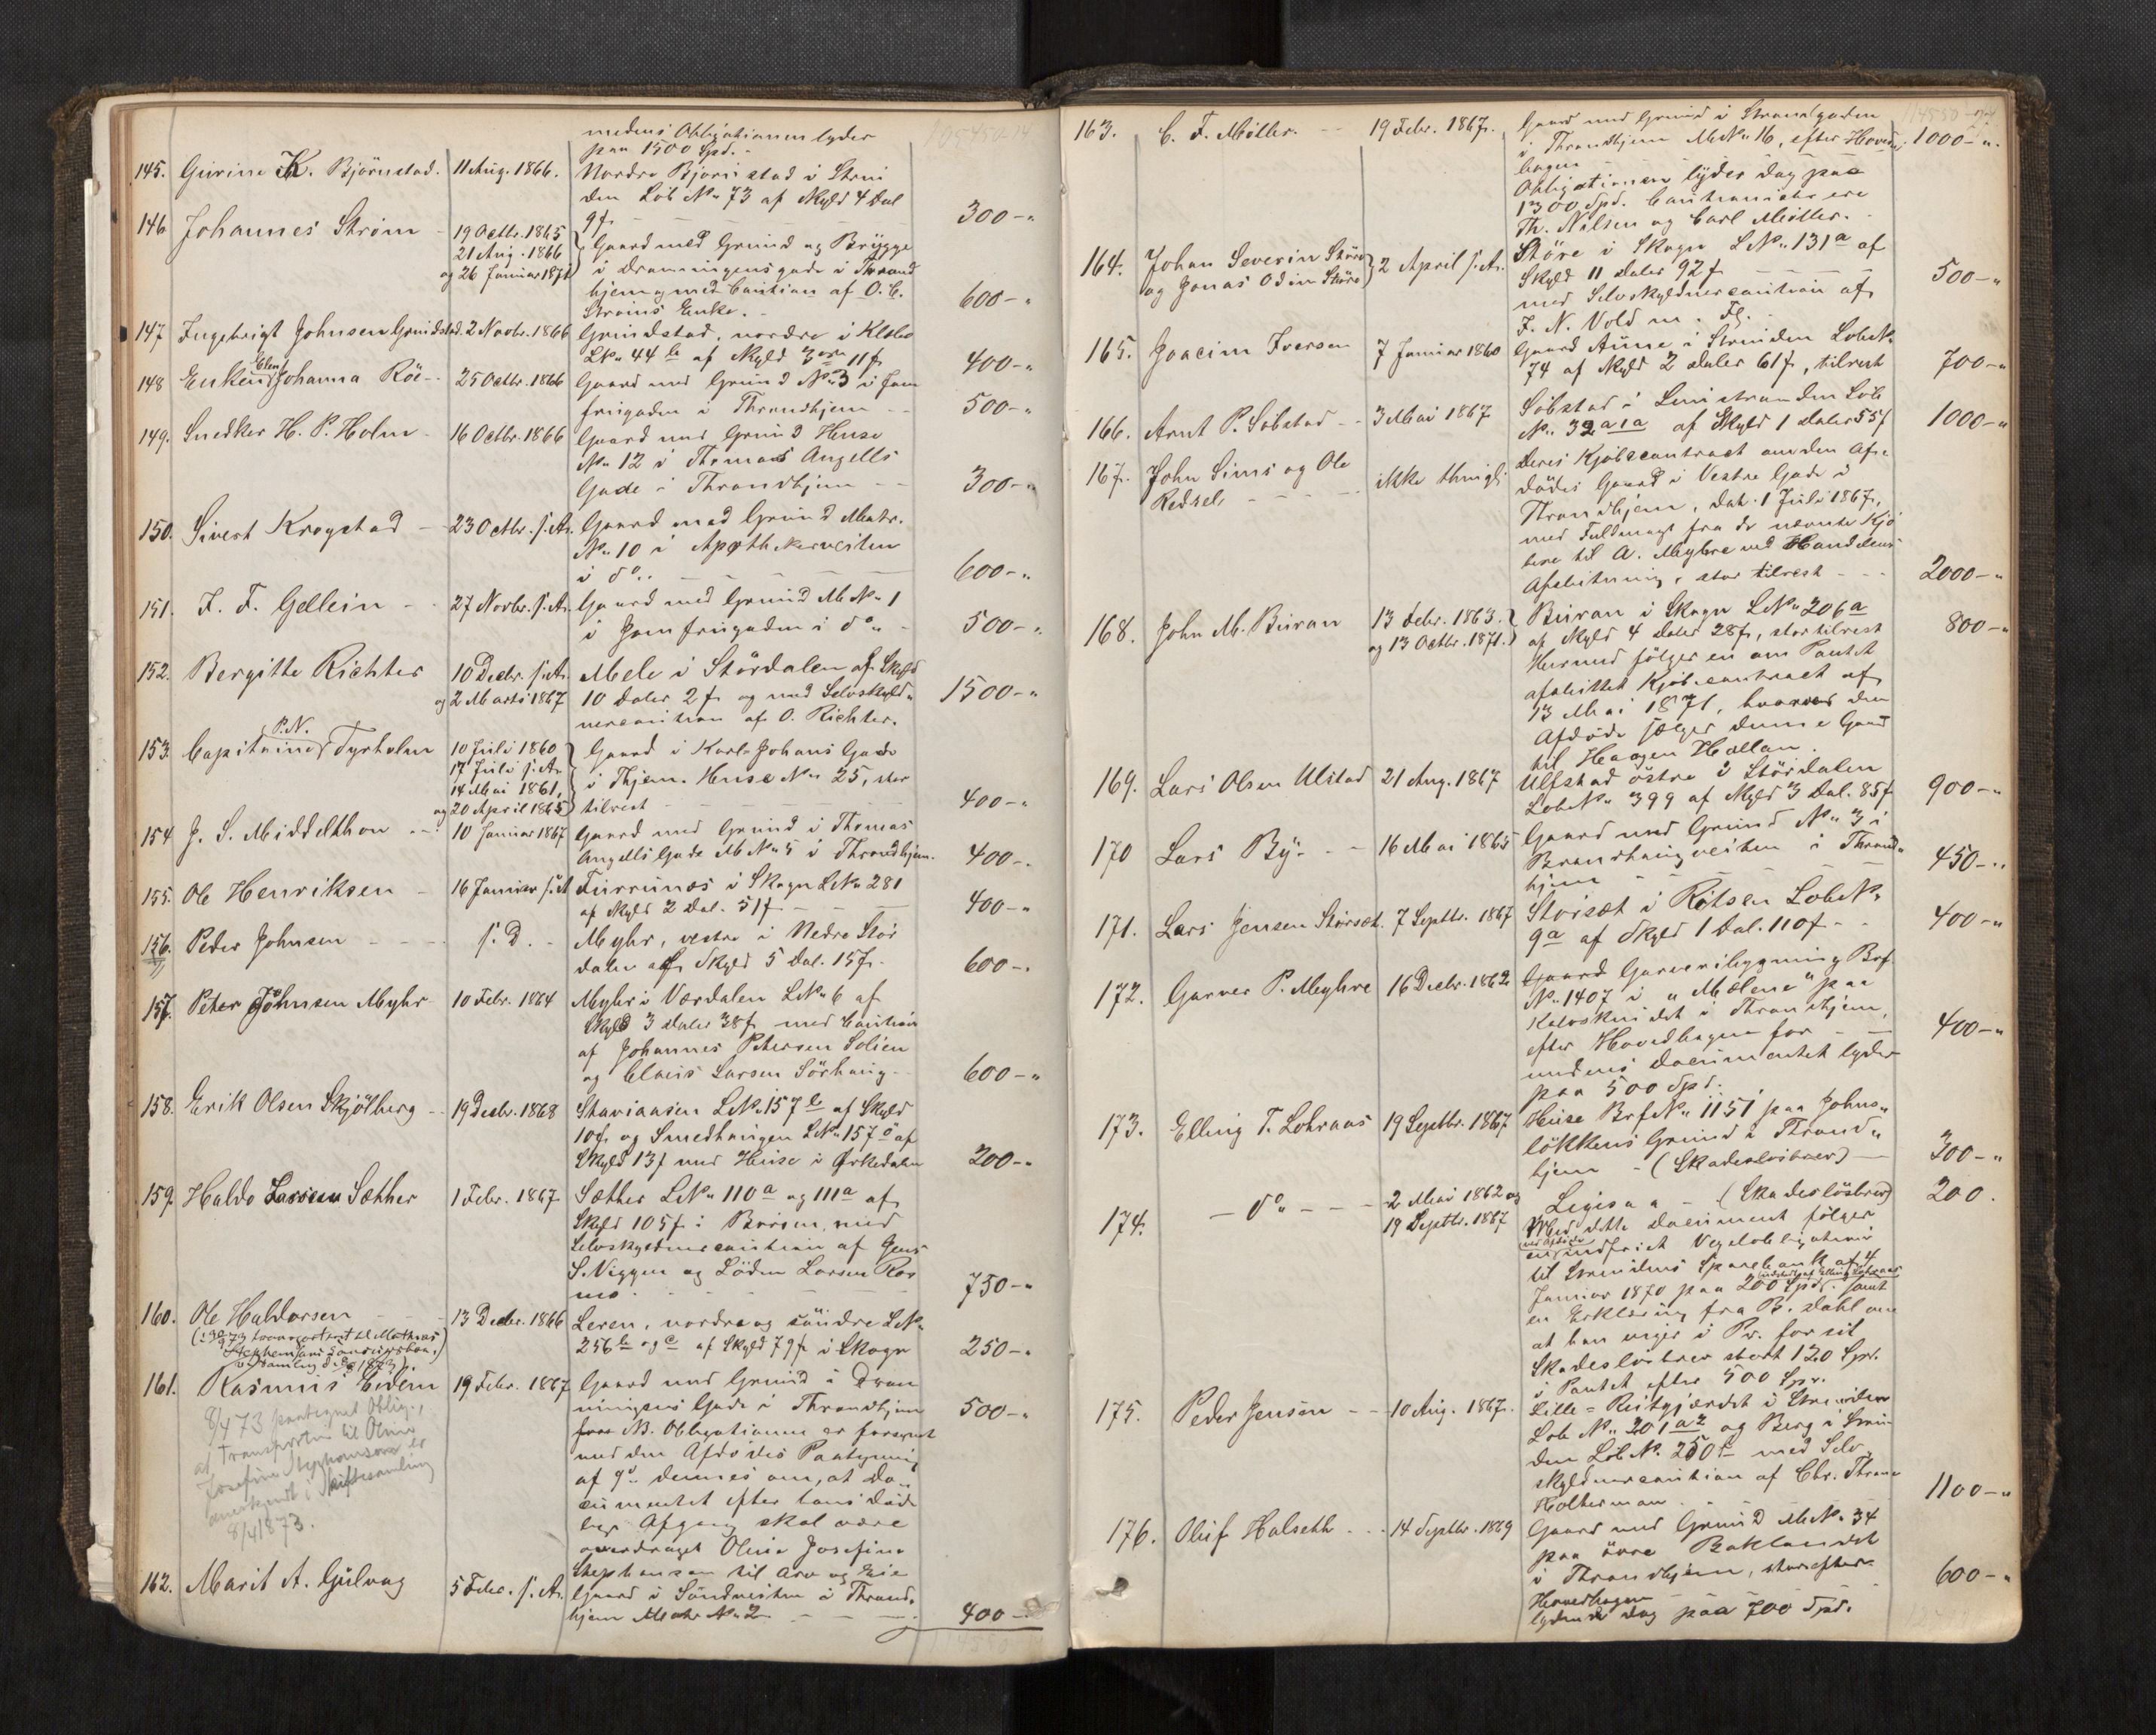 medens Obligationen lyder
paa 1500 Spd.
145. Gurine K. Björnstad. 11 Aug. 1866. Nordre Bjørnstad i Strin
den Löb No. 73 af Skyld 4 Dal
9 f. 300-"
146 Johannes Strøm - 19 Octbr. 1865
21 Aug. 1866
og 26 Januar 1871
Gaard med Grund og Brygge
i Dronningensgade i Thrond
hjem og med Caution af O. C.
Strøms Enke. 600-"
147 Ingebrigt Johnsen Grindstad. 2 Novbr. 1866 Grindstad, nordre i Klæbo
LNo. 44 b af Skyld 3 ort 11 f. 400-"
148 Enken Elen Johanna Röe - 25 Octbr. 1866 Gaard med Grund No. 3 i Jom
frugaden i Throndhjem - - 500-"
149. Snedker H. P. Holm - 16 Octbr. 1866 Gaard med Grund Huse
No. 12 i Thomas Angells
Gade i Throndhjem - - 300-"
150. Sivert Krogstad - 23 Octbr. s. A. Gaard med Grund Matr.
No. 10 i Apothekerveiten
i do. - 600-"
151. J. F. Gellein - 27 Novbr. s. A. Gaard med Grund MNo. 1
i Jomfrugaden i do. - 500-"
152. Bergitte Richter 10 Decbr. s. A.
og 2 Marts 1867
Mele i Stördalen af Skyld
10 Daler 2 f. og med Selvskyld"
nercaution af O. Richter. 1500-"
153. Capitaine P.N. Tyrholm 10 Juli 1860
17 Juli s. A.
14 Mai 1861,
og 20 April 1865
Gaard i Karl-Johans Gade
i Thjem. Huse No. 25, star
tilrest - 400-"
154 J. S. Middelthon - 10 Januar 1867 Gaard med Grund i Thomas
Angells Gade MNo. 5 i Throndhjem. 400-"
155. Ole Henriksen - 16 Januar s. A Furrunæs i Skogn LNo. 281
af Skyld 2 Dal. 51 f. - 400-"
156. Peder Johnsen - s. D. - Myhr, vestre i Nedre Stör
dalen af Skyld 5 Dal. 15 f. 600-"
157. Peter Johnsen Myhr 10 Febr. 1864 Myhr i Værdalen LNo. 6 af
Skyld 3 Daler 38 f. med Caution
af Johannes Petersen Solien
og Claus Larsen Sörhaug - 600-"
158. Erik Olsen Skjölberg - 19 Decbr. 1868 LNo. 157 b af Skyld
10 f. og Smedhaugen LNo. 157 af
Skyld 13 f med Huse i Orkedalen 200-"
159. Haldo Larssen Sæther 1 Febr. 1867 Sæther LNo. 110 a og 111 a af
Skyld 105 f. i Börsen, med
Selvskyldnercaution af Jens
S. Viggen og Larsen Ros
mo - 750-"
160. Ole Haldorsen - 13 Decbr. 1866 Leren, nordre og söndre LNo.
256 b og c af Skyld 79 f. i Skogn 250-"
161. Rasmus Eidem 19 Febr. 1867 Gaard med Grund i Dron
ningens Gade i Throndhjem 500-"
NB. Obligationen er forsynet
med den Afdödes Paategning
af om, at Do
cumentet efter hans Död
skal være
overdraget Oline Josefine
Stephansen til Arv og Eie
8/4 73 paategnet Oblig.,
at Transporten til Oline
Josefine Stephansen er
anerkjendt i Skiftesamling
8/4 1873.
162. Marit A. Gulvag 5 Febr. s. A. Gaard i Söndveiten i Thrond"
hjem Matr No. 2 - 400-"
163. C. F. Möller. - 19 Febr. 1867. Gaard med Grund i Strandgaden
i Throndhjem MNo. 16, efter Hoved" 1000-"
bogen
Obligationen lyder dog paa
1300 Spd. Cautionister ere
Th. Nilsen og Carl Möller. -
164. Johan Severin Störe
og Jonas Odin Störe
2 April s. A. Störe i Skogn LNo. 131 a af
Skyld 11 Daler 92 f - 500-"
med Selvskyldnercaution af
J. N. Vold m. Fl.
165. Joacim Iversen 7 Januar 1860 Gaard Aune i Strinden LobeNo.
74 af Skyld 2 Daler 61 f., tilrest 700-"
166. Arnt P. Söbstad - 3 Mai 1867 Söbstad i Leinstranden Löb
No. 32 a 1 a af Skyld 1 Daler 55 f 1000-"
167. John Sims og Ole
Redsel, - ikke thingl. Deres Kjöbecontract om den Af
dödes Gaard i Vestre Gade i
Throndhjem, dat. 1 Juli 1867,
med Fuldmagt fra de nævnte Kjö
bere til A. Myhre ved Handelens
Afslutning, star tilrest - 2000-"
168. John M. Buran 13 Febr. 1863.
og 13 Octbr. 1871.
Buran i Skogn LNo. 206 a
af Skyld 4 Daler 28 f., star tilrest 800-"
Hermed fölger en om Pantet
afsluttet Kjöbecontract af
13 Mai 1871, hvorved den
Afdöde sælger denne Gaard
til Haagen Hallan.
169. Lars Olsen Ulstad 21 Aug. 1867 Ulfstad östre i Stördalen
LobeNo. 399 af Skyld 3 Dal. 85 f 900-"
170 Lars By - 16 Mai 1865 Gaard med Grund No. 3 i
Brandhaugveiten i Thrond"
hjem - 450-"
171. Lars Jensen Störset. 7 Septbr. 1867 Storsæt i Ritsen LobeNo.
9 a af Skyld 1 Dal. 110 f - 400-"
172. Garver P. Myhre 16 Decbr. 1862 Gaard Garveribygning Brf.
No. 1407 i "Mælene" paa
Kalvskindet i Throndhjem,
efter Hovedbogen for - 400-"
medens Documentet lyder
paa 500 Spd.
173. Elling T. Lohraas 19 Septbr. 1867 Huse BrfNo. 1151 paa Johns"
lökkens Grund i Thrond"
hjem - (Skadeslösbrev) - 300-"
174. - do. - 2 Mai 1862 og
19 Septbr. 1867
- (Skadeslösbrev) 200.
Med dette Document fölger
en indfriet Vexelobligation
til Strindens Sparebank af 4
Januar 1870 paa 200 Spd. samt
en Erklæring fra B. Dahl om
at han eier i Pr. for sit
Skadeslösbrev stort 120 Spd.
i Pantet efter 500 Spd.
175. Peder Jensen - 10 Aug. 1867. Lille-Reitgjerdet i Strinden
Lobe No. 201 a 2 og Berg i Strin
den Löb No. 250 med Selv
skyldnercaution af Chr. Thron
Holterman. 1100-"
176. Oluf Halseth - 14 Septbr. 1869 Gaard med Grund MNo. 34
paa övre Baklandet
i Throndhjem, star efter 600-"
Hovedbogen -
lydende dog paa 700 Spd.